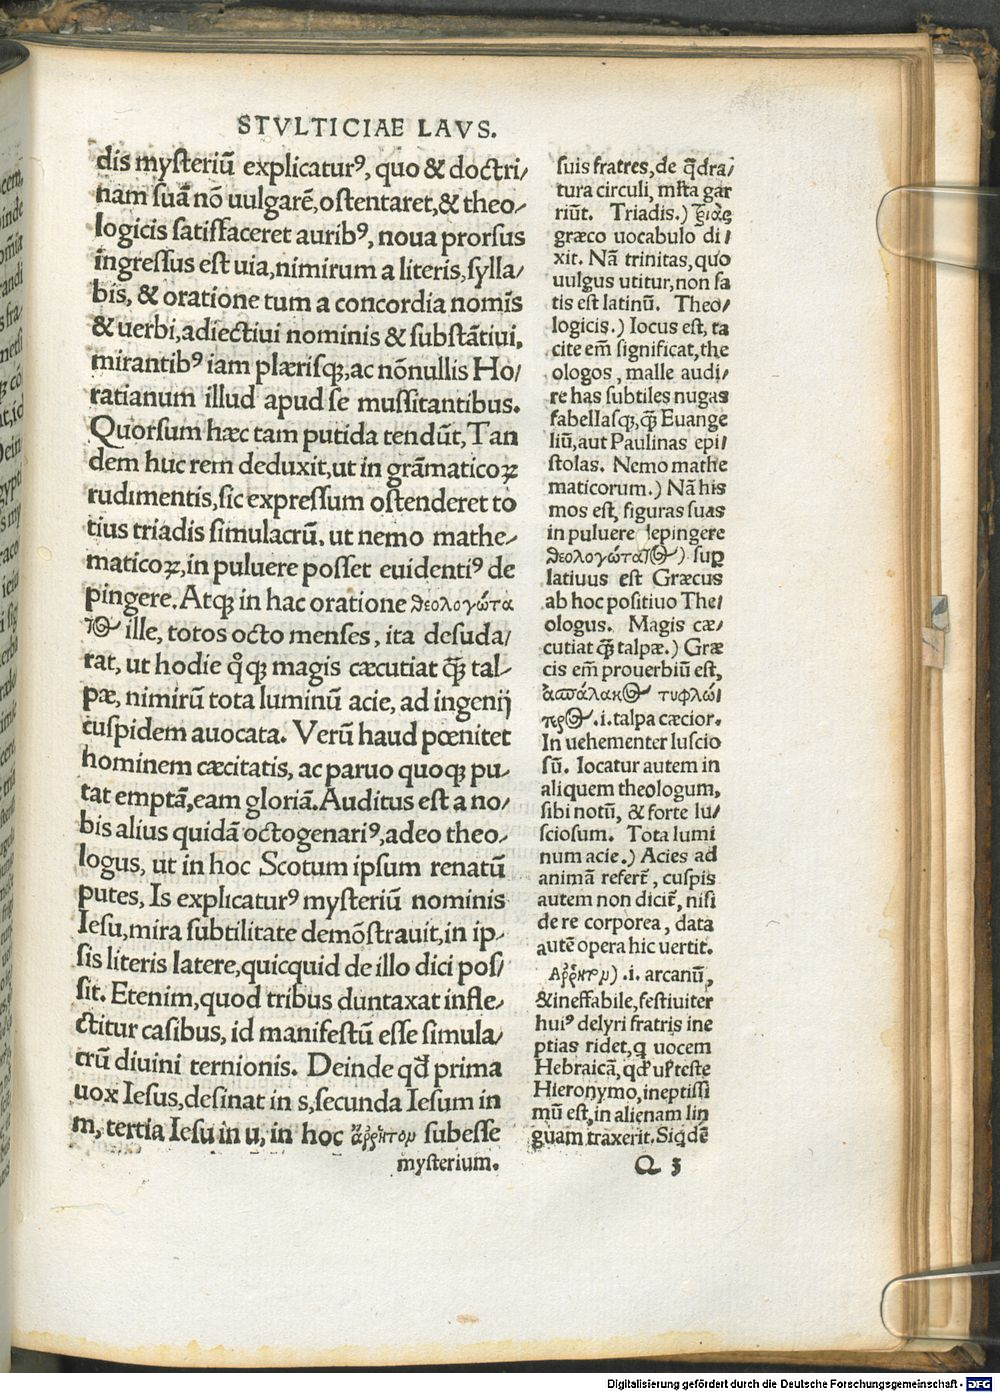 STVLTICIAE LAVS.
dis mysteriũ explicaturꝰ, quo & doctri/
nam suã nõ uulgarẽ, ostentaret, & theo/
logicis satisfaceret auribꝰ, noua prorsus
ingressus est uia, nimirum a literis, sylla/
bis, & oratione tum a concordia nomĩs
& uerbi, adiectiui nominis & substãtiui,
mirantibꝰ iam plærisqꝫ, ac nõnullis Ho/
ratianum illud apud se mussitantibus.
Quorsum hæc tam putida tendũt, Tan
dem huc rem deduxit, ut in grãmaticoꝝ
rudimentis, sic expressum ostenderet to
tius triadis simulacrũ, ut nemo mathe/
maticoꝝ, in puluere posset euidentiꝰ de
pingere. Atqꝫ in hac oratione θεολογώτα
τος ille, totos octo menses, ita desuda/
rat, ut hodie qͦqꝫ magis cæcutiat qꝫ̃ tal/
pæ, nimirũ tota luminũ acie, ad ingenij
cuspidem auocata. Verũ haud pœnitet
hominem cæcitatis, ac paruo quoqꝫ pu/
tat emptã, eam gloriã. Auditus est a no/
bis alius quidã octogenariꝰ, adeo theo/
logus, ut in hoc Scotum ipsum renatũ
putes, Is explicaturꝰ mysteriũ nominis
Iesu, mira subtilitate demõstrauit, in ip/
sis literis latere, quicquid de illo dici pos/
sit. Etenim, quod tribus duntaxat infle/
ctitur casibus, id manifestũ esse simula/
crũ diuini ternionis. Deinde qd̃ prima
uox Iesus, desinat in s, secunda Iesum in
m, tertia Iesu in u, in hoc ἄῤῥητον subesse
mysterium.
suis fratres, de q̃dra/
tura circuli, ml̃ta gar
riũt. Triadis.) τριὰς
græco uocabulo di/
xit. Nã trinitas, quo
uulgus utitur, non sa
tis est latinũ. Theo/
logicis.) Iocus est, ta
cite em̃ significat, the
ologos, malle audi/
re has subtiles nugas
fabellasqꝫ, qꝫ̃ Euange
liũ, aut Paulinas epi/
stolas. Nemo mathe
maticorum.) Nã his
mos est, figuras suas
in puluere depingere
θεολογώτατος) suꝑ
latiuus est Græcus
ab hoc positiuo The/
ologus. Magis cæ/
cutiat qꝫ̃ talpæ.) Græ
cis em̃ prouerbiũ est,
ἀσπάλακος τυφλώ/
τερος .i. talpa cæcior.
In uehementer luscio
sũ. Iocatur autem in
aliquem theologum,
sibi notũ, & forte lu/
sciosum. Tota lumi
num acie.) Acies ad
animã refert̃, cuspis
autem non dicit̃, nisi
de re corporea, data
autẽ opera hic uertit.
Αῤῥητον) .i. arcanũ,
& ineffabile, festiuiter
huiꝰ delyri fratris ine
ptias ridet, q uocem
Hebraicã, qd̃ uel teste
Hieronymo, ineptissi
mũ est, in alienam lin
guam traxerit. Siqdẽ
Q 3
Digitalisierung gefördert durch die Deutsche Forschungsgemeinschaft - DFG